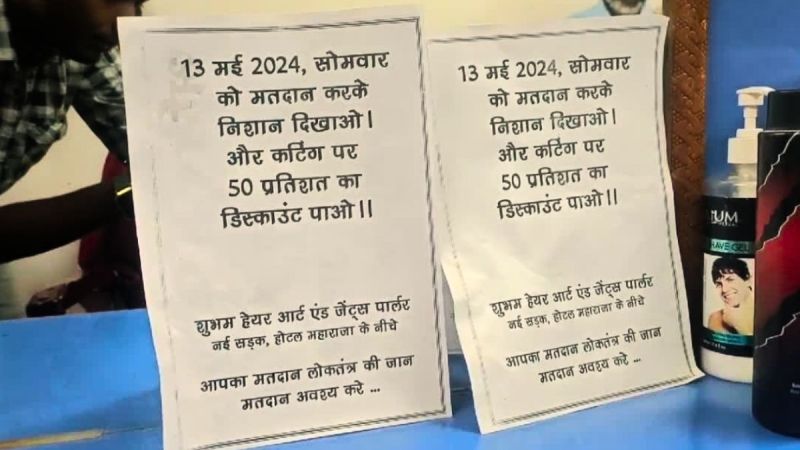 13 मई 2024, सोमवार
को मतदान करके
निशान दिखाओ।
और कटिंग पर
50 प्रतिशत का
डिस्काउंट पाओ।।
शुभम हेयर आर्ट एंड जेंट्स पार्लर
नई सड़क, होटल महाराजा के नीचे
आपका मतदान लोकतंत्र की जान
मतदान अवश्य करे ...
13 मई 2024, सोमवार
को मतदान करके
निशान दिखाओ।
और कटिंग पर
50 प्रतिशत का
डिस्काउंट पाओ।।
शुभम हेयर आर्ट एंड जेंट्स पार्लर
नई सड़क, होटल महाराजा के नीचे
आपका मतदान लोकतंत्र की जान
मतदान अवश्य करे ...
TUM
HAVE GEL